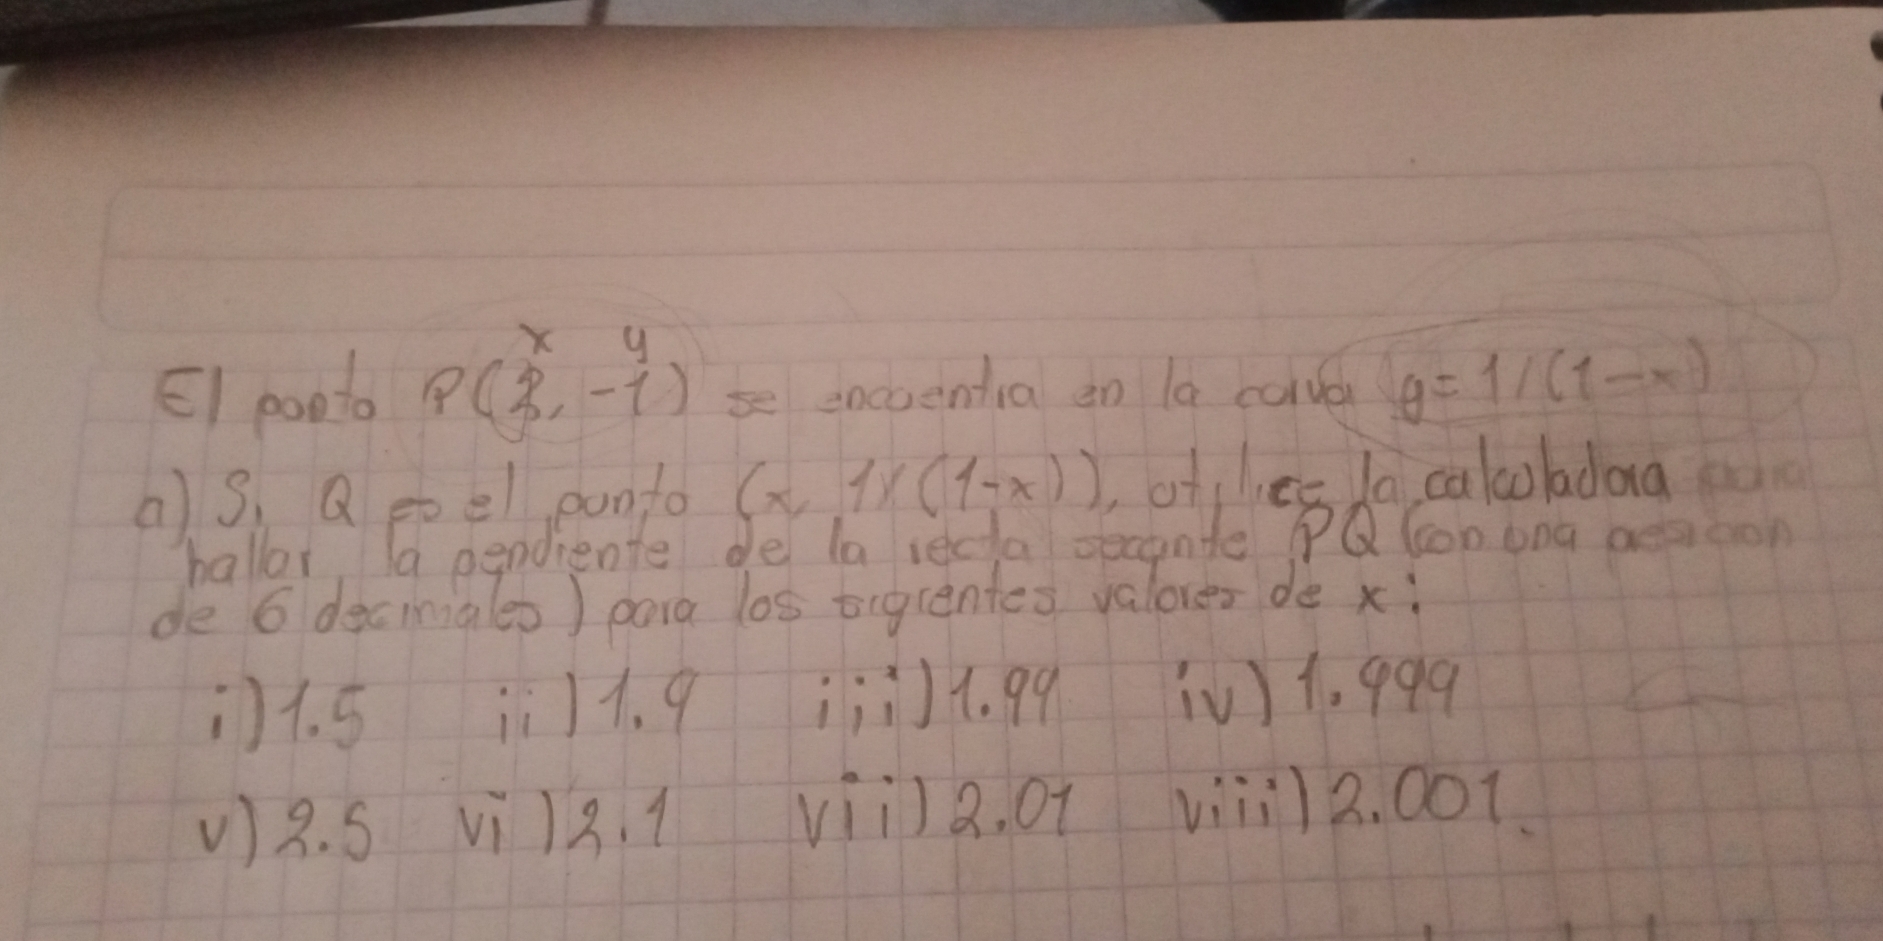 x y
El punto P(2, -1) se encuentra en la curva y=1/(1-x)
a) Si Q es el punto (x, 1/(1-x)), utilice la calculadora para
hallar la pendiente de la recta secante PQ (con una
de 6 decimales) para los siguientes valores de x:
i) 1.5 ii) 1.9 iii) 1.99 iv) 1.999
v) 2.5 vi) 2.1 vii) 2.01 viii) 2.001.